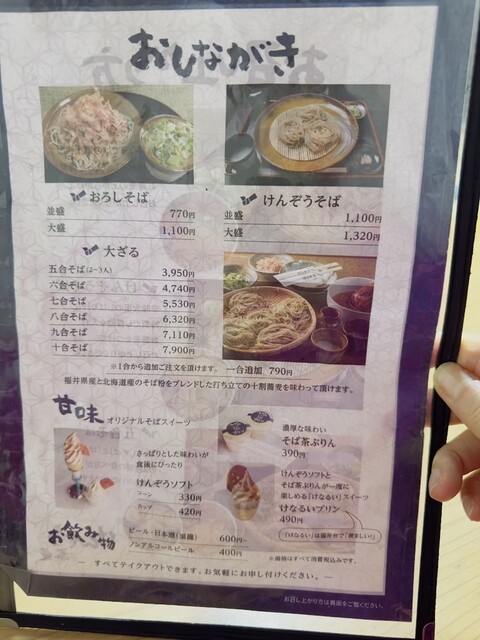 おしながき
おろしそば
並盛 770円
大盛 1,100円
けんぞうそば
並盛 1,100円
大盛 1,320円
大ざる
五合そば(2~3人) 3,950円
六合そば 4,740円
七合そば 5,530円
八合そば 6,320円
九合そば 7,110円
十合そば 7,900円
※1合から追加ご注文を頂けます。 一合追加 790円
福井県産と北海道産のそば粉をブレンドした打ち立ての十割蕎麦を味わって頂けます。
甘味 オリジナルそばスイーツ
さっぱりとした味わいが
食後にぴったり
けんぞうソフト
コーン 330円
カップ 420円
濃厚な味わい
そば茶ぷりん
390円
けんぞうソフトと
そば茶ぷりんが一度に
楽しめる「けなるい」スイーツ
けなるいプリン
490円
「けなるい」は福井弁で「羨ましい」
お飲み物
ビール・日本酒(黒龍) 600円~
ノンアルコールビール 400円
※価格はすべて消費税込みです。
― すべてテイクアウトできます。お気軽にお申し付けください。 ―
お召し上がり方は裏面をご覧ください。